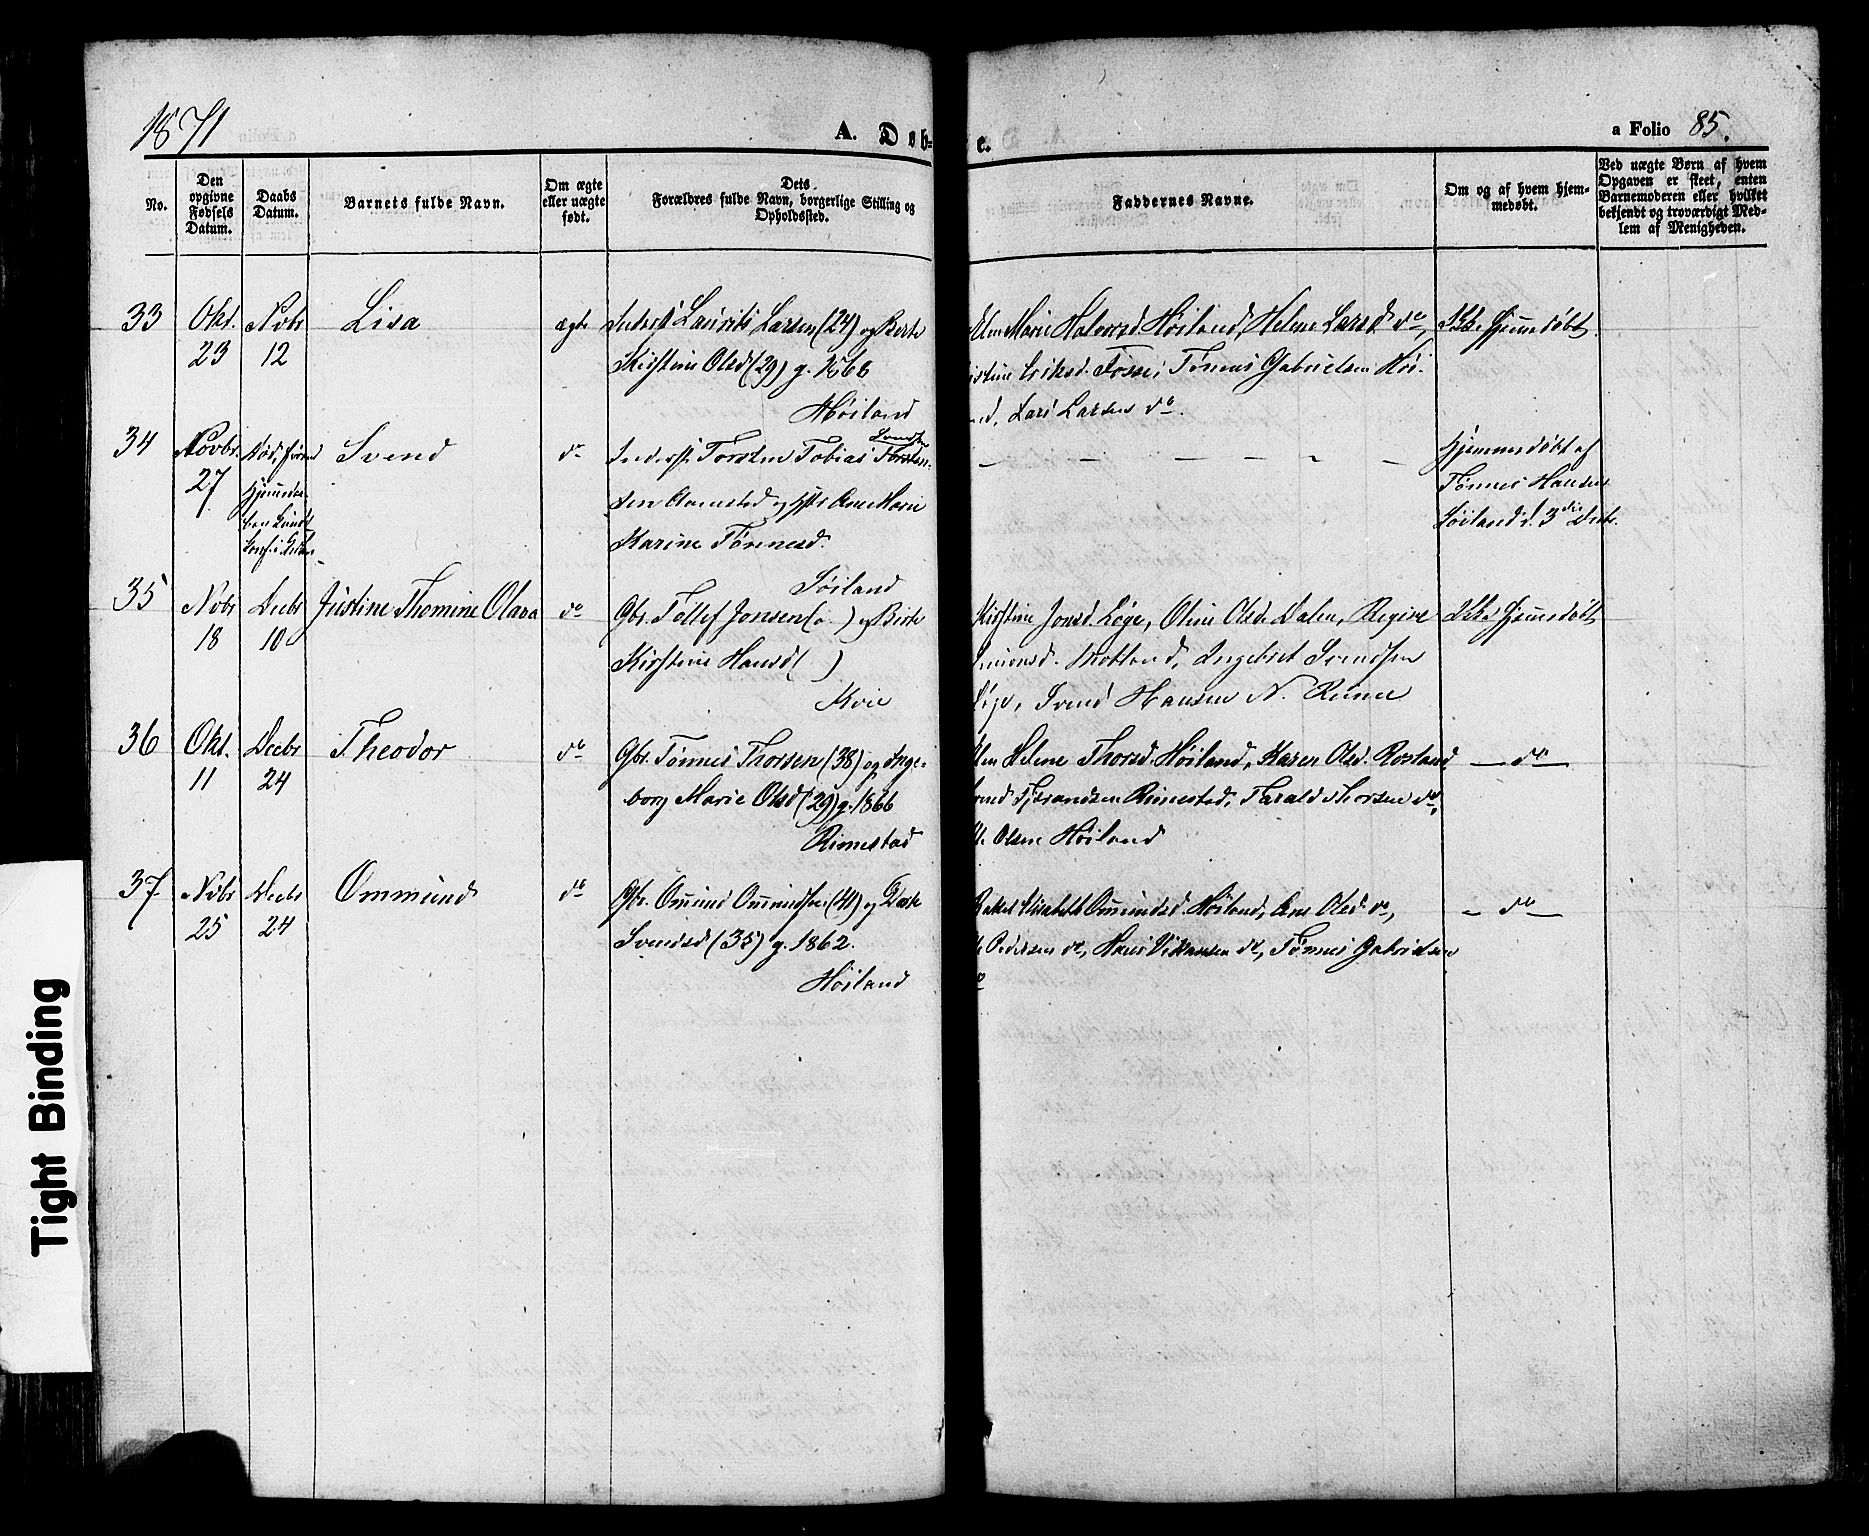 1871
A. Døb=
e.
a Folio 85.
No.
Den opgivne Fødsels Datum.
Daabs Datum.
Barnets fulde Navn.
Om ægte eller uægte født.
Dets Forældres fulde Navn, borgerlige Stilling og Opholdssted.
Faddernes Navne.
Om og af hvem hjemmedøbt.
Ved uægte Børn af hvem Opgaven er skeet, enten Barnemoderen eller hvilket bekjendt og troværdigt Medlem af Menigheden.
33 Okt. 23 Nvbr 12 Lisa ægte
Inderst Laurits Larsen (24) og Berte
Kirstine Olsd (29) g. 1866
Høiland
Marie Halvorsd. Høiland, Helene Larsd do,
istine Eriksd. Fosse, Tønnes Gabrielsen Høi-
nd, Lars Larsen do.
Ikke Hjemmedøbt
34 Novbr. 27 Svend do
Inderst Torsten Tobias
Svendsen
Aamestad og Ane Marie
Karine Tønnesd.
Søiland
Hjemmedøbt af
Tønnes Hansen
Søiland d. 3die Decbr.
35 Nvbr 18 Decbr 10 Justine Thomine Olava do
Gbr. Tellef Jonsen ( ) og Berte
Kirstine Hansd ( )
Kvie
Kirstine Jonsd. Løge, Oline Olsd. Dalen, Regine
Motland, Ingebret Svendsen
øge, Svend Hansen N. Rime
Ikke Hjemmedøbt
36 Okt. 11 Decbr 24 Theodor do
Gbr. Tønnes Thorsen (38) og Inge-
borg Marie Olsd (29) g. 1866
Rimestad
Helene Thorsd. Høiland, Karen Olsd. Rosland
Rimestad, Tarald Thorsen do,
Olsen Høiland
— do —
37 Nvbr 25 Decbr 24 Ommund do
Gbr. Omund Ommundsen (44) og
Svendsd (35) g. 1862.
Høiland
Rakel Elisabeth Ommundsd. Høiland, Ane Olsd. do,
Pedersen do, Hans do, Tønnes Gabrielsen
do
— do —
Tight Binding